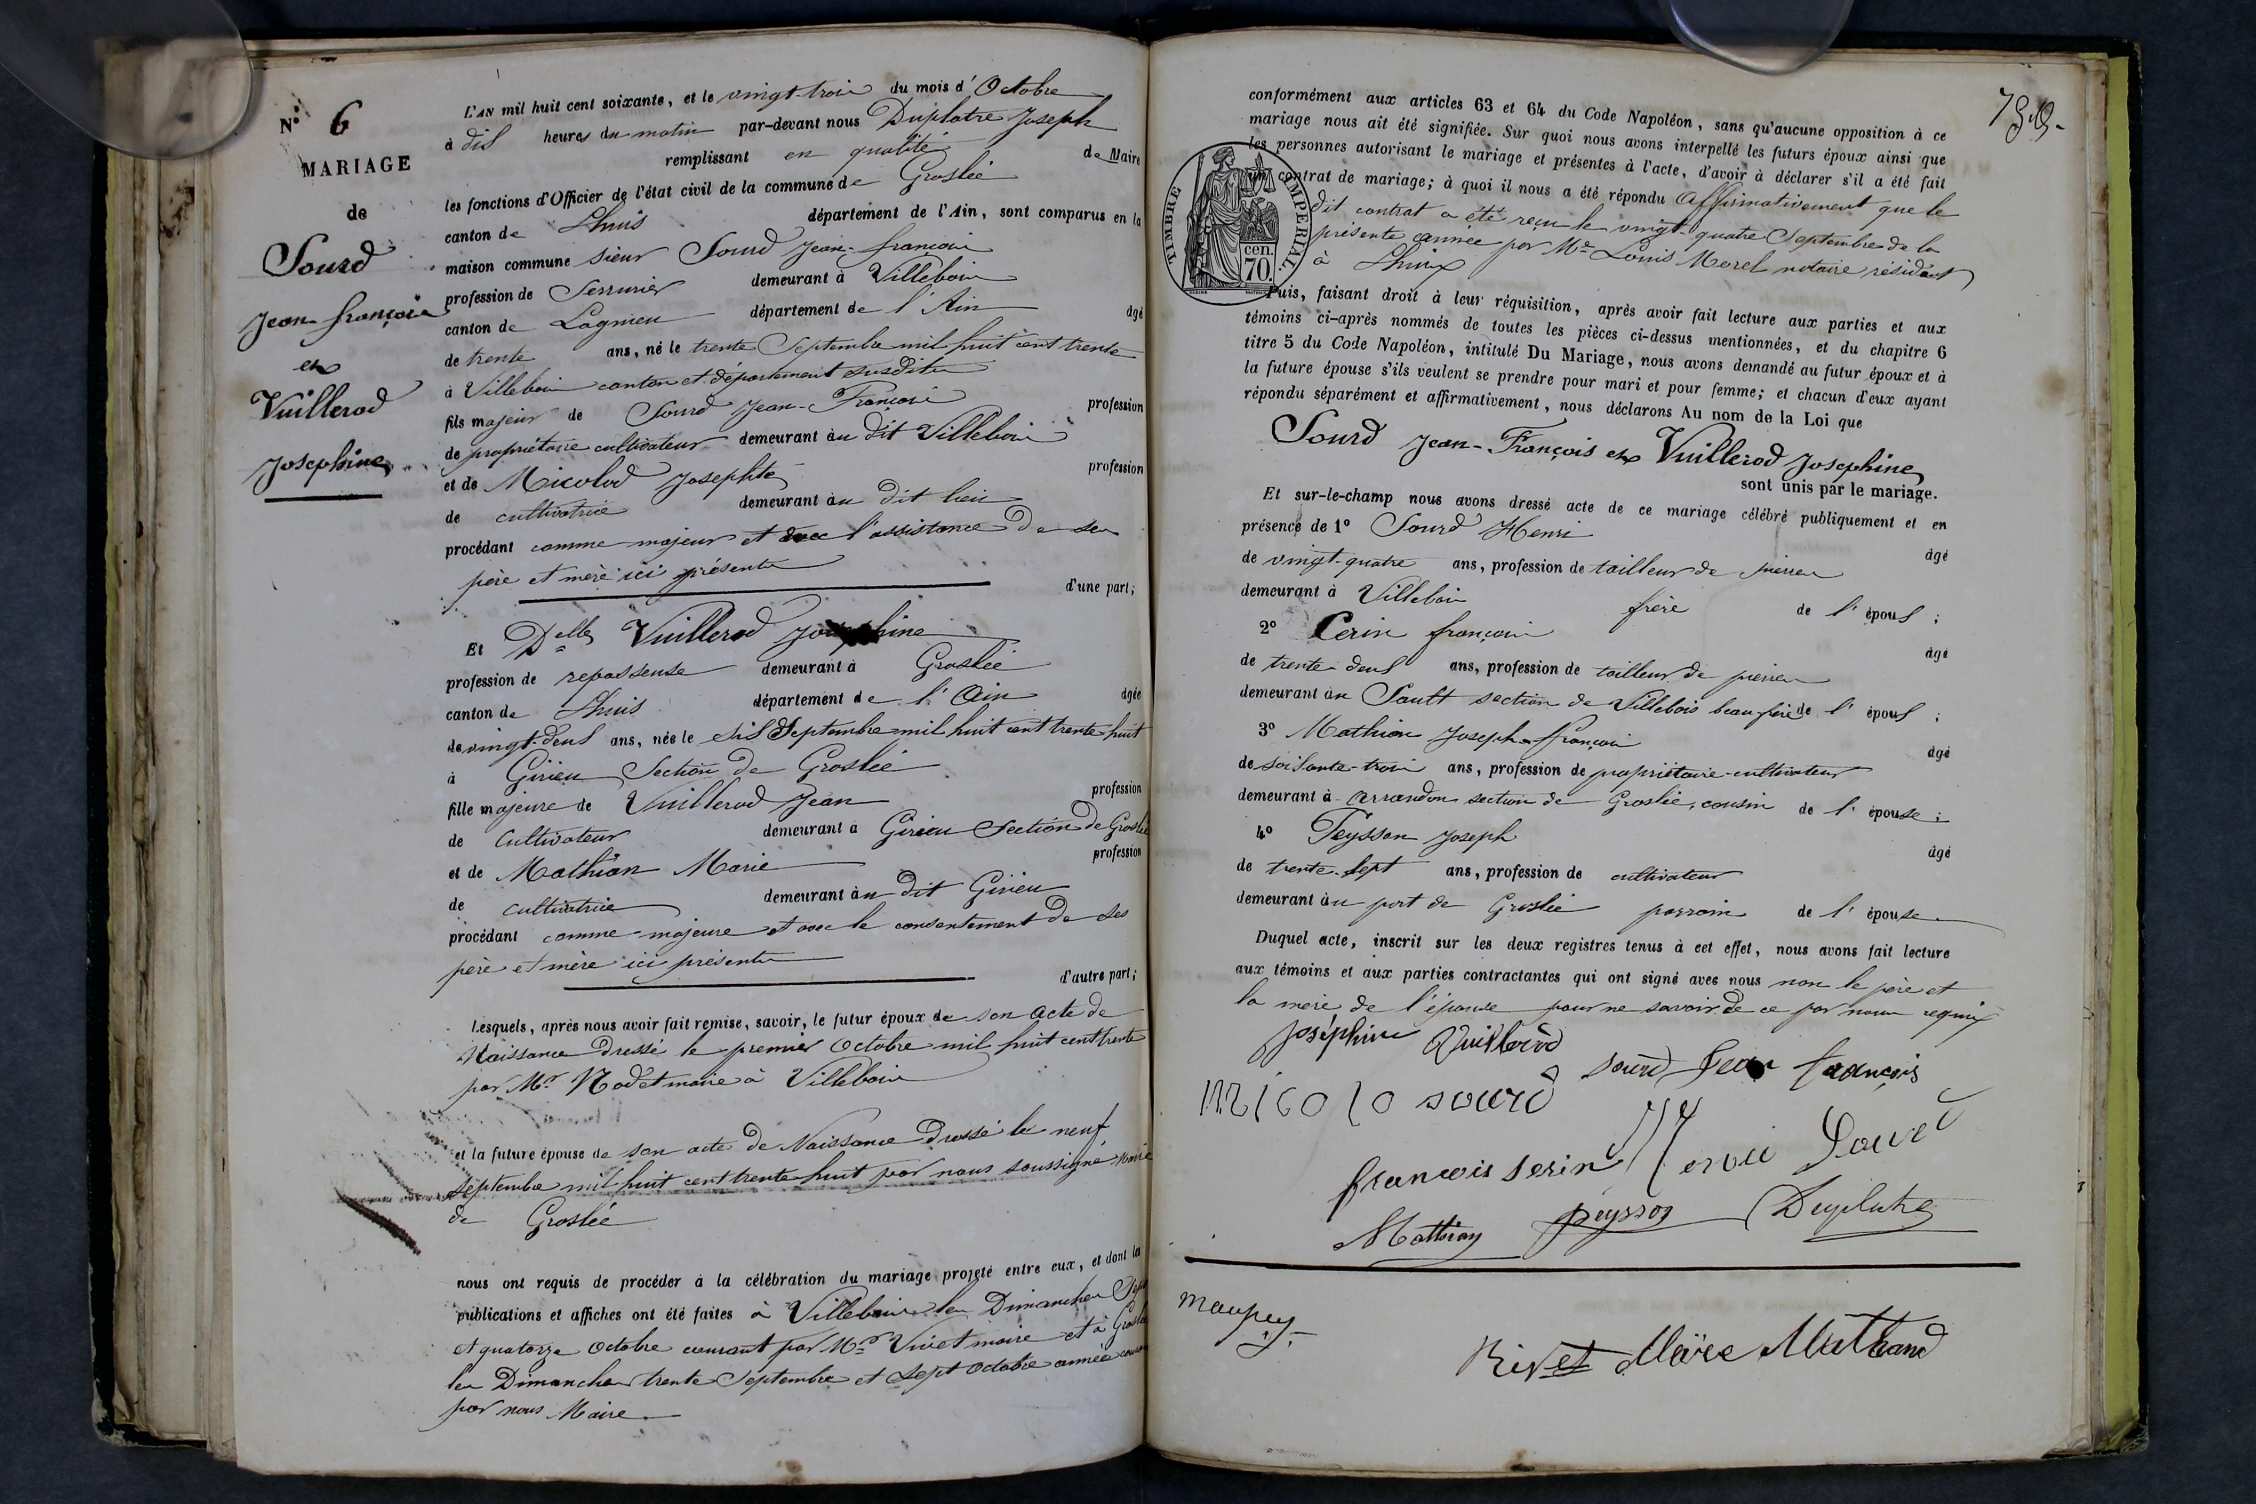 N° 6
MARIAGE
de
Sourd
Jean-françois
et
Vuillerod
Josephine
L'AN mil huit cent soixante, et le vingt-trois du mois d'Octobre
à dix heures du matin par-devant nous Duplatre Joseph
remplissant en qualité de Maire
les fonctions d'Officier de l'état civil de la commune de Groslée
canton de Lhuis département de l'Ain, sont comparus en la
maison commune sieur Sourd Jean-françois
profession de Serrurier demeurant à Villebois
canton de Lagnieu département de l'Ain âgé
de trente ans, né le trente Septembre mil huit cent trente
à Villebois canton et département susdits
fils majeur de Sourd Jean-François profession
de propriétaire cultivateur demeurant au dit Villebois
et de Micolod Josephte profession
de cultivatrice demeurant au dit lieu
procédant comme majeur et avec l'assistance de ses
père et mère ici présents
d'une part;
Et Delle Vuillerod Josephine
profession de repasseuse demeurant à Groslée
canton de Lhuis département de l'Ain âgée
de vingt-deux ans, née le dix Septembre mil huit cent trente huit
à Girieu Section de Groslée
fille majeure de Vuillerod Jean profession
de cultivateur demeurant à Girieu Section de Groslée
et de Mathian Marie profession
de cultivatrice demeurant au dit Girieu
procédant comme majeure et avec le consentement de ses
père et mère ici présents
d'autre part;
Lesquels, après nous avoir fait remise, savoir, le futur époux de son acte de
Naissance dressé le premier Octobre mil huit cent trente
par Mr Nodet maire à Villebois
et la future épouse de son acte de Naissance dressé le neuf
septembre mil huit cent trente huit par nous soussigné Maire
de Groslée
nous ont requis de procéder à la célébration du mariage projeté entre eux, et dont les
publications et affiches ont été faites à Villebois les Dimanches Sept
et quatorze Octobre courant par Mr Vivet maire et à Groslée
les Dimanches trente Septembre et sept Octobre année courante
par nous Maire
conformément aux articles 63 et 64 du Code Napoléon, sans qu'aucune opposition à ce
mariage nous ait été signifiée. Sur quoi nous avons interpellé les futurs époux ainsi que
les personnes autorisant le mariage et présentes à l'acte, d'avoir à déclarer s'il a été fait
un contrat de mariage; à quoi il nous a été répondu affirmativement que le
dit contrat a été reçu le vingt-quatre Septembre de la
présente année par Me Louis Morel notaire résidant
à Lhuix
TIMBRE IMPERIAL.
70 cen.
Puis, faisant droit à leur réquisition, après avoir fait lecture aux parties et aux
témoins ci-après nommés de toutes les pièces ci-dessus mentionnées, et du chapitre 6
titre 5 du Code Napoléon, intitulé Du Mariage, nous avons demandé au futur époux et à
la future épouse s'ils veulent se prendre pour mari et pour femme; et chacun d'eux ayant
répondu séparément et affirmativement, nous déclarons Au nom de la Loi que
Sourd Jean-François et Vuillerod Josephine
sont unis par le mariage.
Et sur-le-champ nous avons dressé acte de ce mariage célébré publiquement et en
présence de 1° Sourd Henri âgé
de vingt-quatre ans, profession de tailleur de pierres
demeurant à Villebois frère de l'époux;
2° Cerin françois âgé
de trente deux ans, profession de tailleur de pierres
demeurant au Sault section de Villebois beau-frère de l'époux;
3° Mathian Joseph françois âgé
de soixante-trois ans, profession de propriétaire-cultivateur
demeurant à arrandon section de Groslée, cousin de l'épouse;
4° Peysson Joseph âgé
de trente-sept ans, profession de cultivateur
demeurant au port de Groslée parrain de l'épouse
Duquel acte, inscrit sur les deux registres tenus à cet effet, nous avons fait lecture
aux témoins et aux parties contractantes qui ont signé avec nous non le père et
la mère de l'épouse pour ne savoir de ce par nous requis
Joséphine Vuillerod
sourd Jean françois
micolo sourd
françois serin Henri Sourd
Mathian peysson Duplatre
maupey
Rivet Marie Mathand